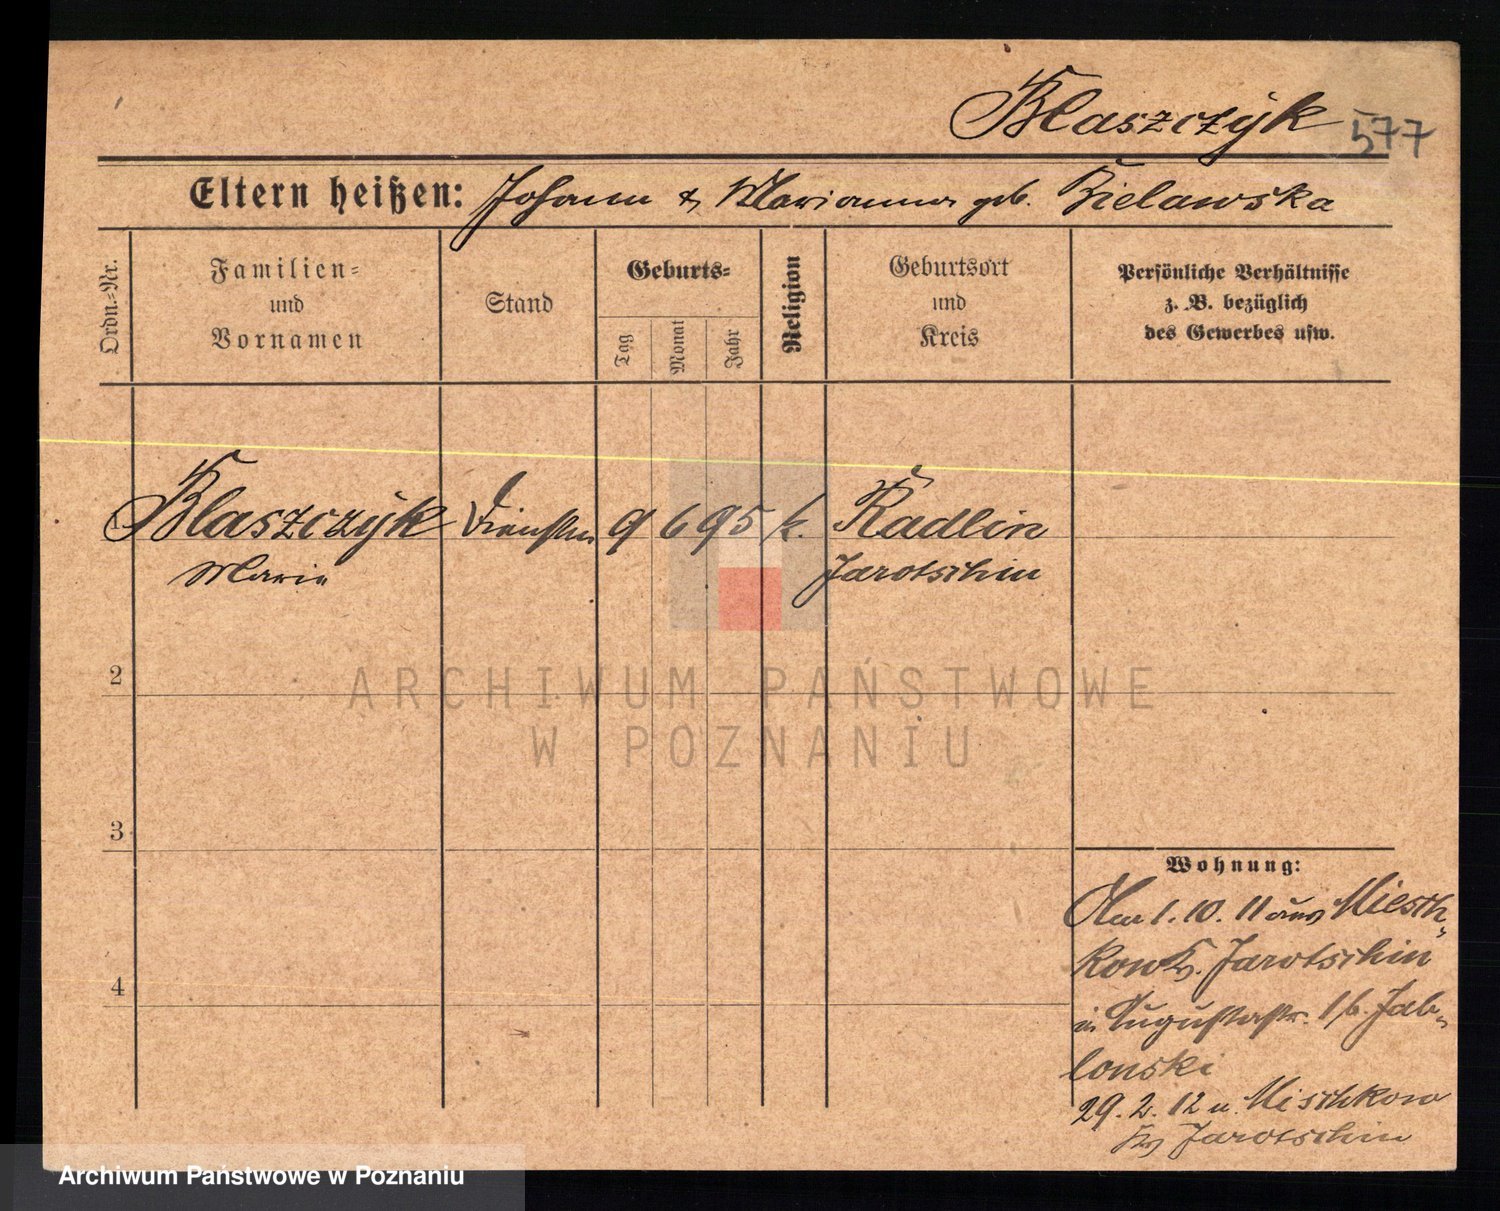 Blaszczÿk 577
Eltern heißen: Johann & Marianna geb. Bielawska
Ordn.-Nr.
Familien-
und
Vornamen
Stand
Geburts-
Tag
Monat
Jahr
Religion
Geburtsort
und
Kreis
Persönliche Verhältnisse
z. B. bezüglich
des Gewerbes usw.
1 Blaszczÿk 9 6 95 k. Radlin
Marie Jarotschin
2
ARCHIWUM PAŃSTWOWE
W POZNANIU
3
Wohnung:
Am 1. 10. 11 aus Miesch-
kow Jarotschin
in Augustastr. 1 b. Jab-
lonski
29. 2. 12 n. Mischkow
Jarotschin
4
Archiwum Państwowe w Poznaniu